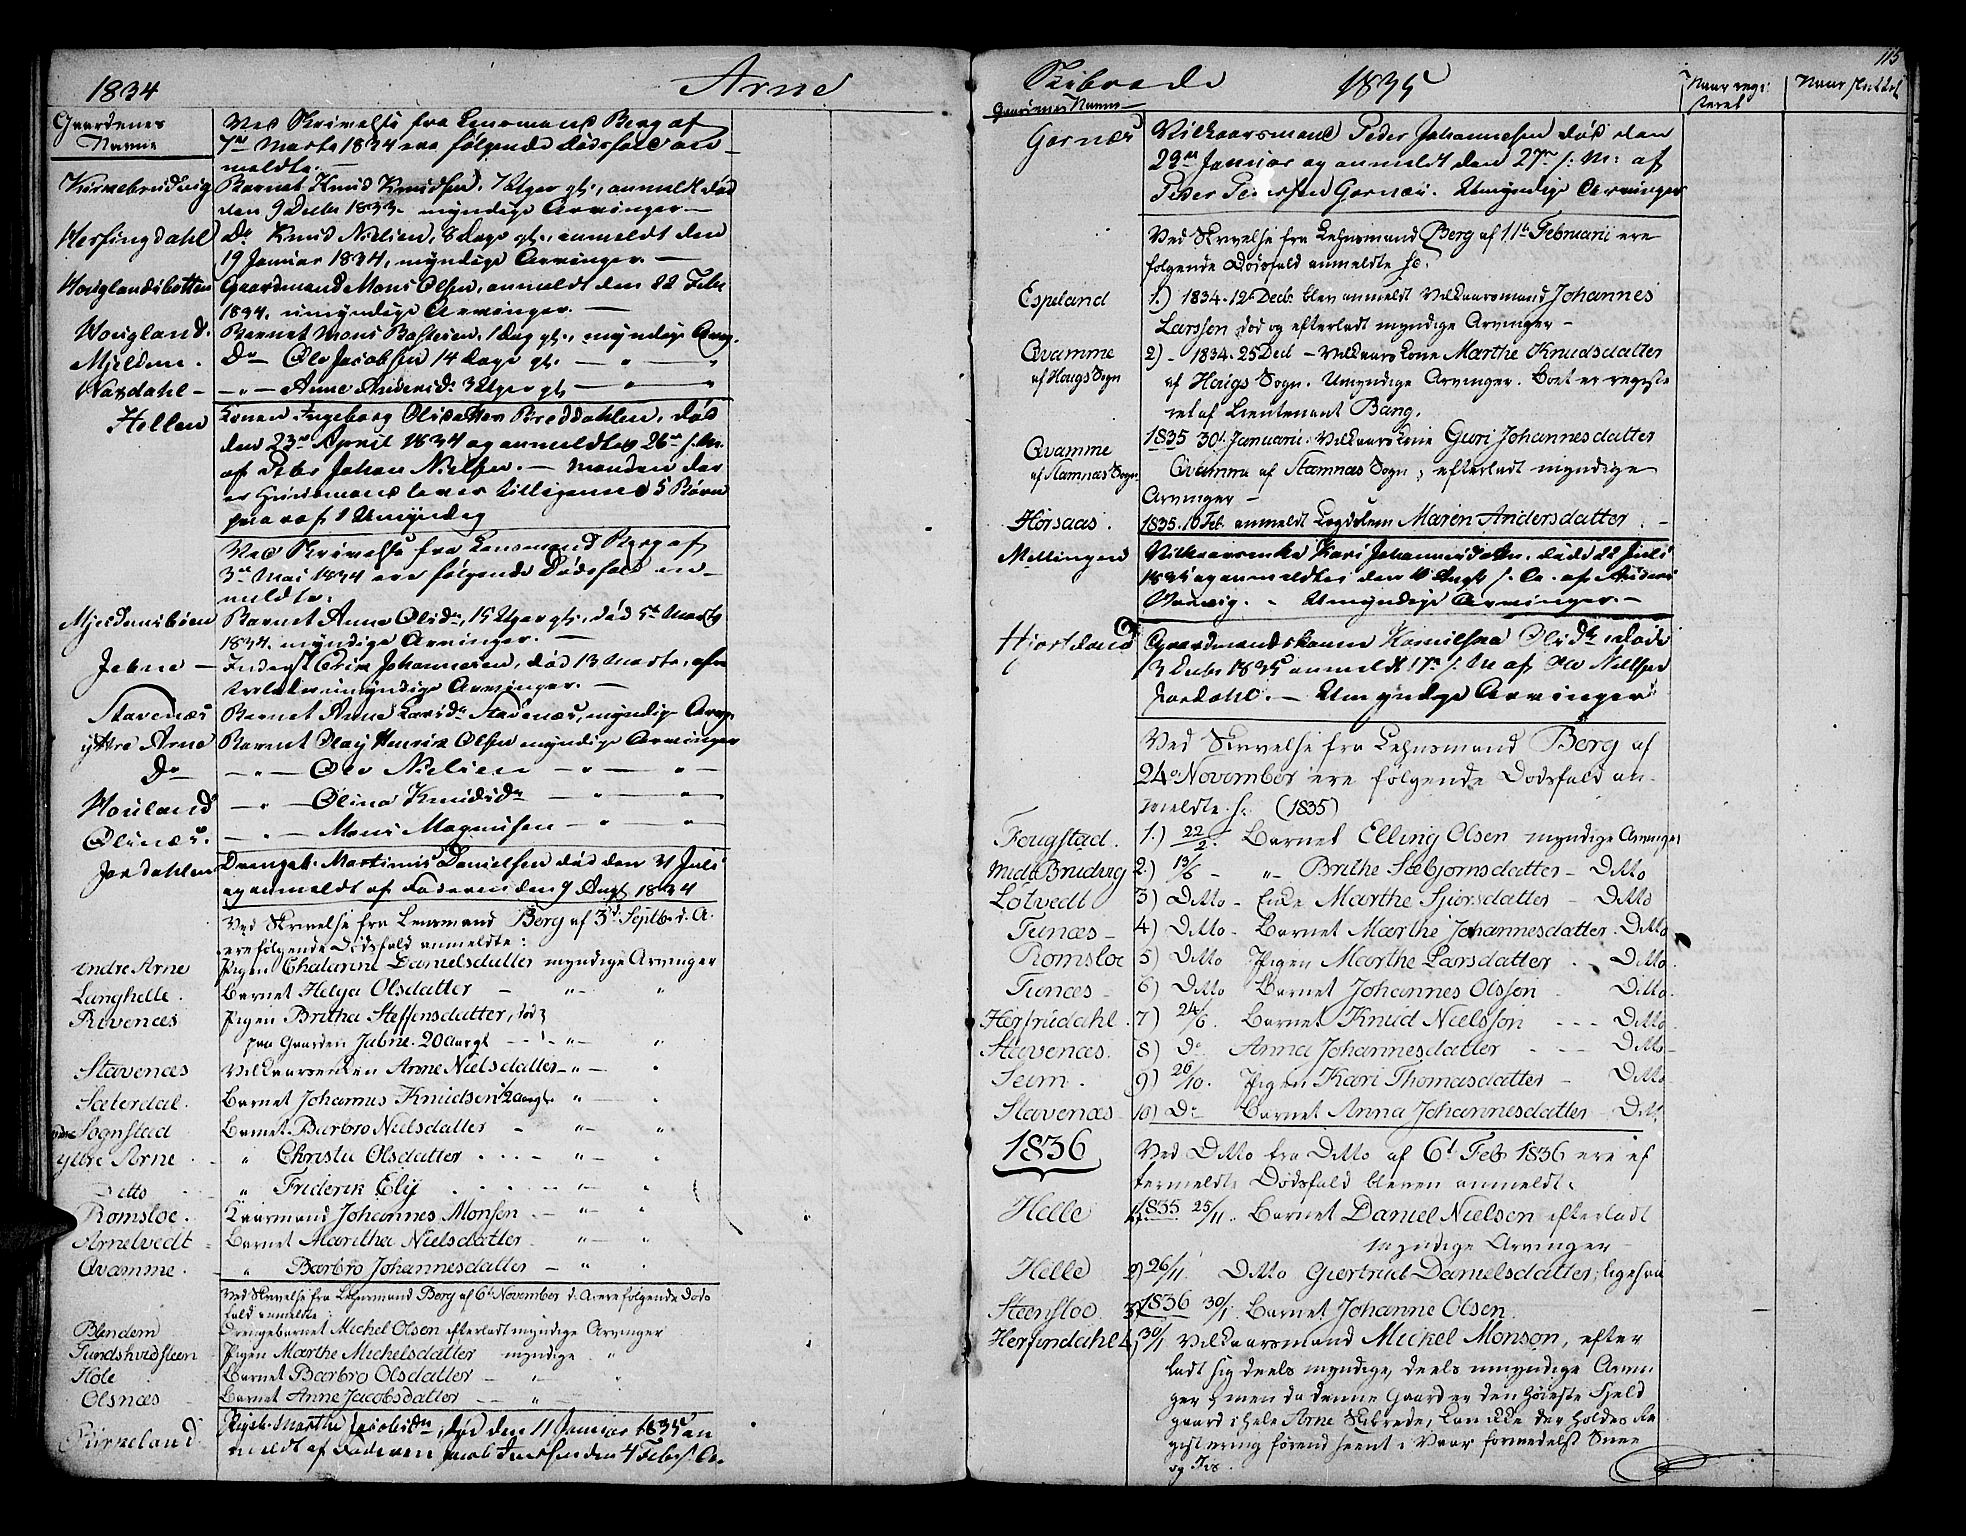 1834 Arne
Gaardenes
Navne
Ved Skrivelse fra Lensmand Berg af
7de Marts 1834 ere følgende dødsfald an-
meldte:
Barnet Knud Knudsen, 7 Uger gl., anmeldt død
den 9 Decbr 1833. myndige Arvinger.—
Do Knud Nielsen, 8 Dage gl., anmeldt den
19 Januar 1834, myndige Arvinger.—
Houglandsbotten Gaardmand Mons Olsen, anmeldt den 22 Febr
1834. umyndige Arvinger.—
Hougland. Barnet Mons 1 Dag gl., myndige Arv.
Mjeldem. Do Ole Jacobsen 14 Dage gl. — " — "
—"— Anne Andersdr 3 Uger gl. — " — "
Hellen Konen Ingeborg Olisdatter Breddahlen, død
den 23de April 1834 og anmeldtes 26de s. M.
af Peder Johan Nielsen.— Manden der
er Huusmand lever tilligemed 5 Børn
hvoraf 1 Umyndig
Ved Skrivelse fra Lensmand Berg af
3de Mai 1834 ere følgende Dødsfald an-
meldte:
Barnet Anne Olisdr, 15 Uger gl., død 5te Marts
1834. myndige Arvinger.—
Jebne — Inderst Johannesen, død 13 Marts, efter
umyndige Arvinger.—
Stavenæs Barnet Anne Larsdr Stavenæs, myndige Arv.
ytre Arne Barnet Olay Henrik Olsen myndige Arvinger
Do —"— Ole Nielsen —"— "—
Houland —"— Olina Knudsdr —"— "
Olsnæs. —"— Mons Magnusen —"— "
Jordahlen Drengen Martinus Danielsen død den 31 Juli
og anmeldt af Faderen den 9 Augt 1834
Ved Skrivelse fra Lensmand Berg af 3d Septb. d. A.
ere følgende Dødsfald anmeldte:
indre Arne Pigen Chatarine Danielsdatter myndige Arvinger
Langhelle. Barnet Helga Olsdatter — "— "
Rivenæs Pigen Britha Steffensdatter, død
paa Gaarden Jabne. 20 aar gl — "— "
Stavenæs Vilkaarsenken Anne Nielsdatter —"— "
Sæterdal. Barnet Johannes Knudsen ½ aar gl "— "
Sognstad Barnet Barbro Nielsdatter — "— "
ytre Arne " Christa Olsdatter — "— "
Ditto " Friderik Ely — "— "
Romsloe. Kaarmand Johannes Monsen — "— "
Arnetvedt Barnet Maritha Nielsdatter — "— "
Qvamme. " Barbro Johannesdatter — "— "
Ved Skrivelse fra Lehnsmand Berg af 6te November d. A. ere følgende Døds
fald anmeldte:
Blendem Drengebarnet Michel Olsen efterladt myndige Arvinger
Pigen Marthe Michelsdatter myndige "
Barnet Barbro Olsdatter — "
Olsnæs Barnet Anne Jacobsdatter — "
Pigeb. Marthe Jacobsdr, død den 11 Januar 1835 an
meldt af Faderen Jacob den 4 Febr s. A.
Skibrede 1835 115
Gaardenes Navne—
Naar regi-
steret
Naar sluttet
Garnæs Vilkaarsmand Peder Johannesen død den
23de Januar og anmeldt den 27de s. M. af
Peder Pedersen Garnæs. Umyndige Arvinger
Ved Skrivelse fra Lehnsmand Berg af 11te Februarii ere
følgende Dødsfald anmeldte so:
Espeland 1.) 1834. 12 Decb. blev anmeldt Vilkaarsmand Johannes
Larssen død og efterladt myndige Arvinger —
Qvamme
af Hougs Sogn
2) — 1834. 25 Decb — Vilkaars Kone Marthe Knudsdatter
af Hougs Sogn. Umyndige Arvinger. Boet er registe
ret af Lieutenant Bang.
Qvamme
af Stamnæs Sogn.
1835 30. Januarii. Vilkaars Kone Guri Johannesdatter
Qvamme af Stamnæs Sogn; efterladt myndige
Arvinger —
Hørsaas. 1835. 10 Feb. anmeldt Legdslem Maren Andersdatter. —
Mellingen Vilkaarsenke Kari Johannesdatter død 22 Juli
1835 og anmeldtes den Augt s. A. af Anders
— Umyndige Arvinger.—
Hjortland Gaardmandskonen Olisdr døde
3 Decbr 1835 anmeldt 17de s. M af Ole Nielsen
Jordahl.— Umyndige Arvinger
Ved Skrivelse fra Lehnsmand Berg af
24de November ere følgende Dødsfald an-
meldte so: (1835)
Fougstad. 1.) 22/2. Barnet Elling Olsen myndige Arvinger
Midt Brudvig 2.) 13/6 — " Brithe Sæbjørnsdatter — Ditto
Løtvedt 3) Ditto — Enke Marthe Sjursdatter — Ditto
Tunæs — 4) Ditto — Barnet Marthe Johannesdatter. Ditto
Romsloe 5) Ditto Pigen Marthe Larsdatter — Ditto.
Tunæs — 6) Ditto Barnet Johannes Olsson — Ditto.
7) 24/6. Barnet Knud Nielsson — — — Ditto
Stavenæs. 8) Do Anna Johannesdatter — — Ditto—
Seim. 9) 26/10. Pigen Kari Thomasdatter — Ditto
Stavenæs 10) Do Barnet Anna Johannesdatter — Ditt.
1836 Ved Ditto fra Ditto af 6t Feb 1836 ere ef
termeldte Dødsfald bleven anmeldt.
Helle 1. 1835 25/11. Barnet Daniel Nielsen efterladt
myndige Arvinger —
Helle 2) 26/11 Ditto Giertrud Danielsdatter, ligesaa
Steensloe 3. 1836 30/1. Barnet Johanne Olsen.
Herfindahl 4, 30/1 Vilkaarsmand Mickel Monson, efter
ladt sig deels myndige, deels umyndige Arvin
ger, men da denne Gaard er den høieste Fjeld
gaard i hele Arne Skibrede, kan ikke der holdes Re
gistrering førend seent i Vaar formedelst Snee
og Iis.